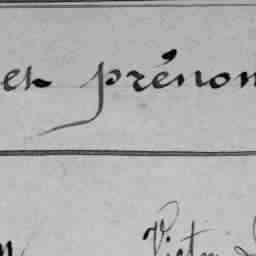 et prénom
Victor